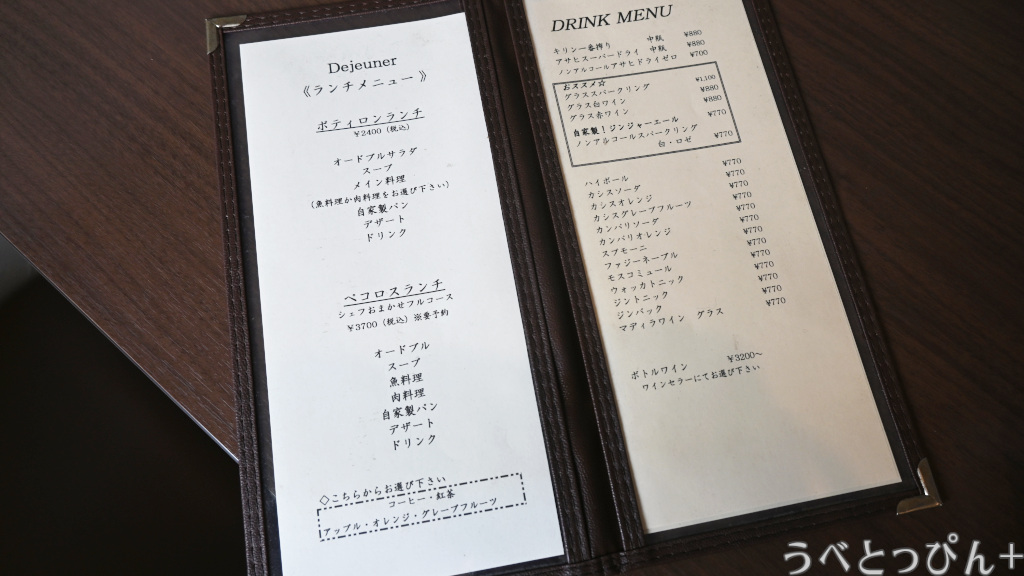 Dejeuner
《ランチメニュー》
ポティロンランチ
¥2400（税込）
オードブルサラダ
スープ
メイン料理
（魚料理か肉料理をお選び下さい）
自家製パン
デザート
ドリンク
ペコロスランチ
シェフおまかせフルコース
¥3700（税込）※要予約
オードブル
スープ
魚料理
肉料理
自家製パン
デザート
ドリンク
◇こちらからお選び下さい
コーヒー・紅茶
アップル・オレンジ・グレープフルーツ
DRINK MENU
キリン一番搾り 中瓶 ¥880
アサヒスーパードライ 中瓶 ¥880
ノンアルコールアサヒドライゼロ ¥700
おススメ☆
グラススパークリング ¥1,100
グラス白ワイン ¥880
グラス赤ワイン ¥880
自家製！ジンジャーエール ¥770
ノンアルコールスパークリング
白・ロゼ ¥770
ハイボール ¥770
カシスソーダ ¥770
カシスオレンジ ¥770
カシスグレープフルーツ ¥770
カンパリソーダ ¥770
カンパリオレンジ ¥770
スプモーニ ¥770
ファジーネーブル ¥770
モスコミュール ¥770
ウォッカトニック ¥770
ジントニック ¥770
ジンバック ¥770
マディラワイン グラス ¥770
ボトルワイン ¥3200～
ワインセラーにてお選び下さい
うべとっぴん＋